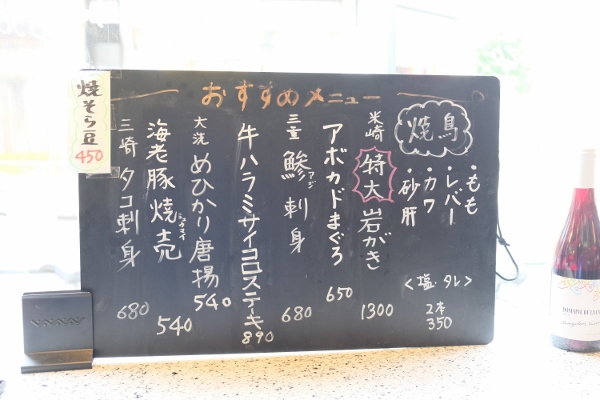 おすすめメニュー
焼鳥
・もも
・レバー
・カワ
・砂肝
<塩・タレ>
2本
350
米崎
特大
岩がき
1300
アボカドまぐろ
650
三重
鯵刺身
アジ
680
牛ハラミサイコロステーキ
890
大洗
めひかり唐揚
540
海老豚焼売
シュウマイ
540
三崎
タコ刺身
680
焼そら豆
450